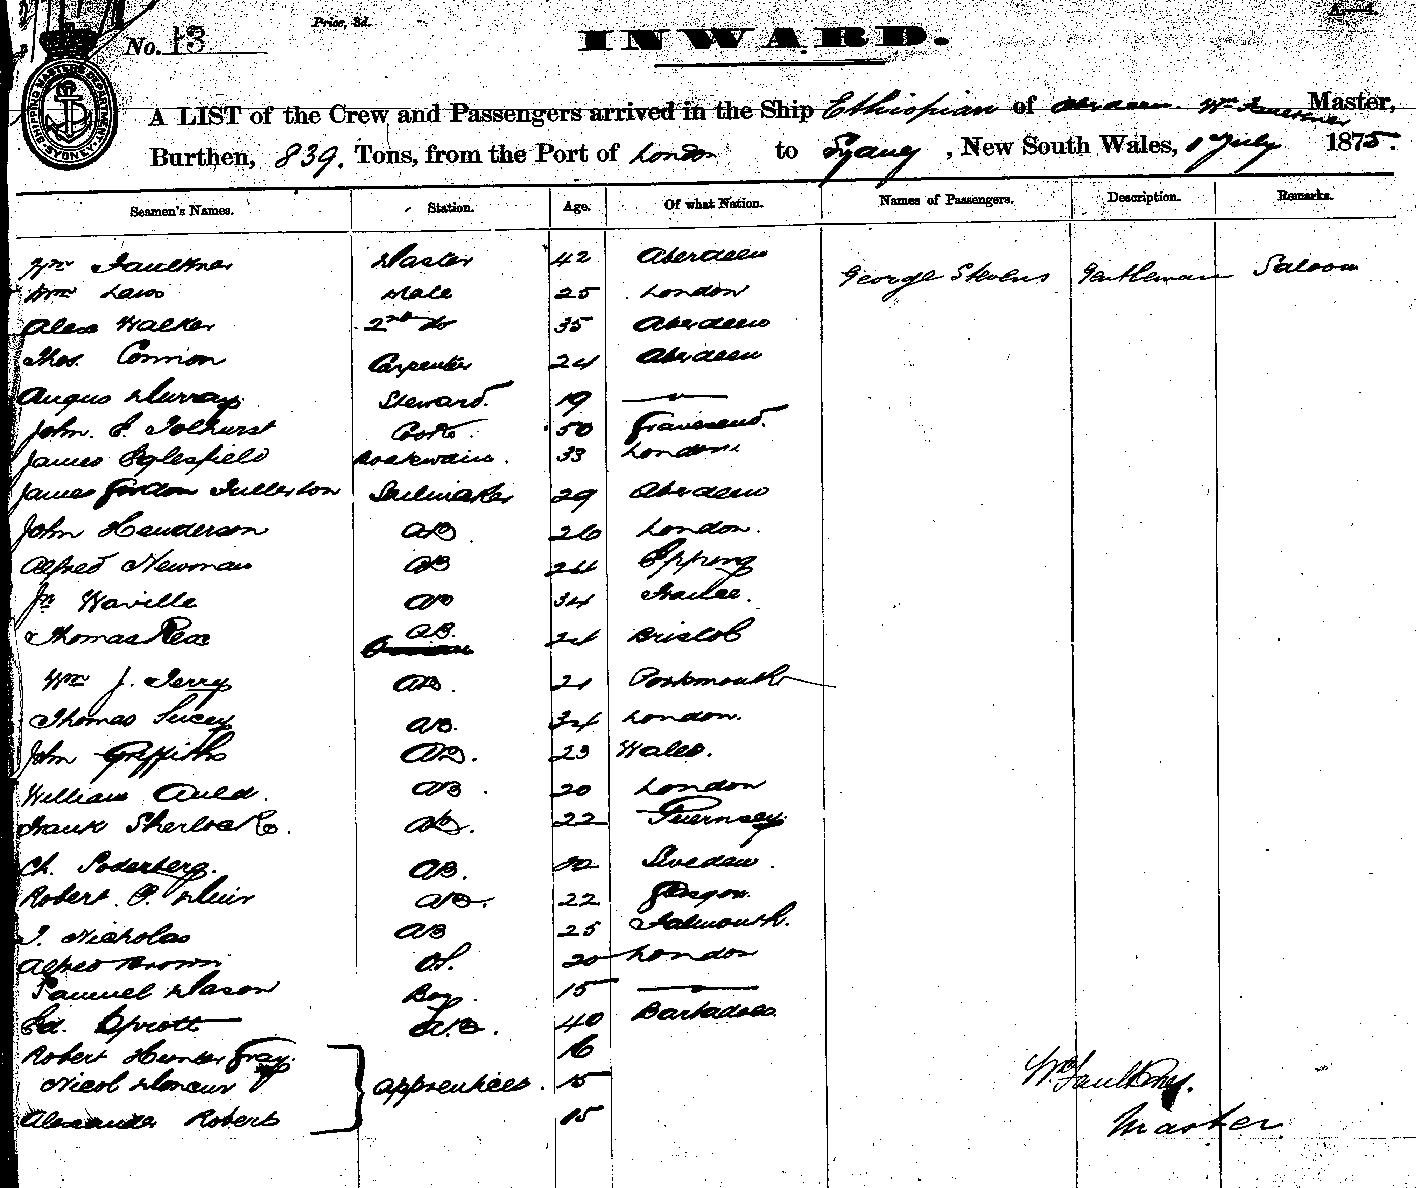 No. 13
Price, 3d.
INWARD.
SHIPPING MASTER'S DEPARTMENT SYDNEY
A LIST of the Crew and Passengers arrived in the Ship Ethiopian of Aberdeen. Wm Faulkner Master,
Burthen, 839. Tons, from the Port of London to Sydney, New South Wales, 1st July 1875.
Seamen's Names. Station. Age. Of what Nation. Names of Passengers. Description. Remarks.
Wm Faulkner Master 42 Aberdeen George Stevens Gentleman Saloon
Wm Laws Mate 25 London
Alex Walker 2nd do 35 Aberdeen
Thos. Connon Carpenter 24 Aberdeen
Angus Murray Steward. 19 —
John. E. Tolhurst Cook. 50 Gravesend.
James Eglesfield Boatswain. 33 London.
James Gordon Fullerton Sailmaker 29 Aberdeen
John Henderson AB. 26 London.
Alfred Newman AB 24 Epping
Jn Waville AB 34 France.
Thomas Rea AB. 24 Bristol
Wm J. Terry AB. 21 Portsmouth
Thomas Lucey AB. 34 London.
John Griffiths AB. 23 Wales.
William Auld. AB. 20 London
Frank Sherlock. AB. 22 Guernsey
Ch. Soderberg. AB. Sweden.
Robert. P. Muir AB. 22 Glasgow.
J. Nicholas AB 25 Falmouth.
Alfred Brown O.S. 20 London
Samuel Mason Boy. 15 —
Ed. Sprott A.B. 40 Barbadoes
Robert Hunter Gray. 16
Nicol apprentices. 15
Alexander Robert 15
Wm Faulkner.
Master